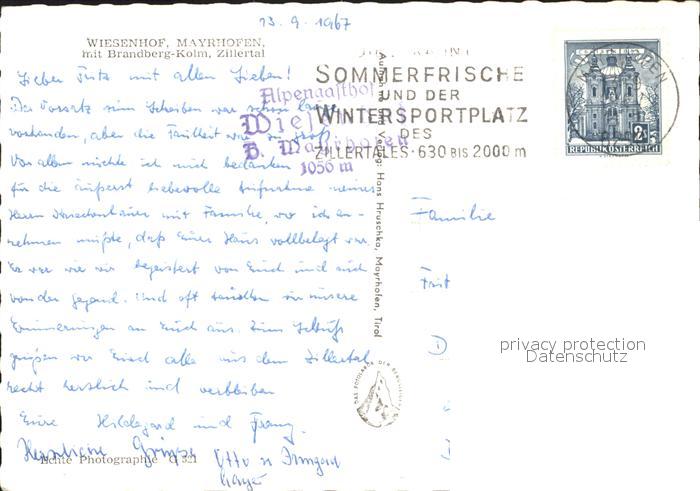 13. 9. 1967
WIESENHOF, MAYRHOFEN,
mit Brandberg-Kolm, Zillertal
Lieber Fritz mit allen Lieben!
Der Vorsatz zum Schreiben war schon
vorhanden, aber die Faulheit war zu groß.
Vor allem möchte ich mich bedanken
für die äußerst liebevolle Aufnahme meines
Herrn mit Familie, wo ich
nehmen mußte, daß Euer Haus vollbelegt war.
Er war wie wir begeistert von Euch und auch
von der Gegend. Und oft tauschten wir unsere
Erinnerungen an Euch aus. Zum Schluß
grüßen wir Euch alle aus dem Zillertal
recht herzlich und verbleiben
Eure Hildegard und Franz.
Herzliche Grüsse Otto u. Irmgard
Echte Photographie
Alpengasthof
B. Mayrhofen
1056 m
SOMMERFRISCHE
UND DER
WINTERSPORTPLATZ
DES
ZILLERTALES · 630 BIS 2000 m
2S
REPUBLIK ÖSTERREICH
Verlag: Hans Hruschka, Mayrhofen, Tirol
Familie
privacy protection
Datenschutz